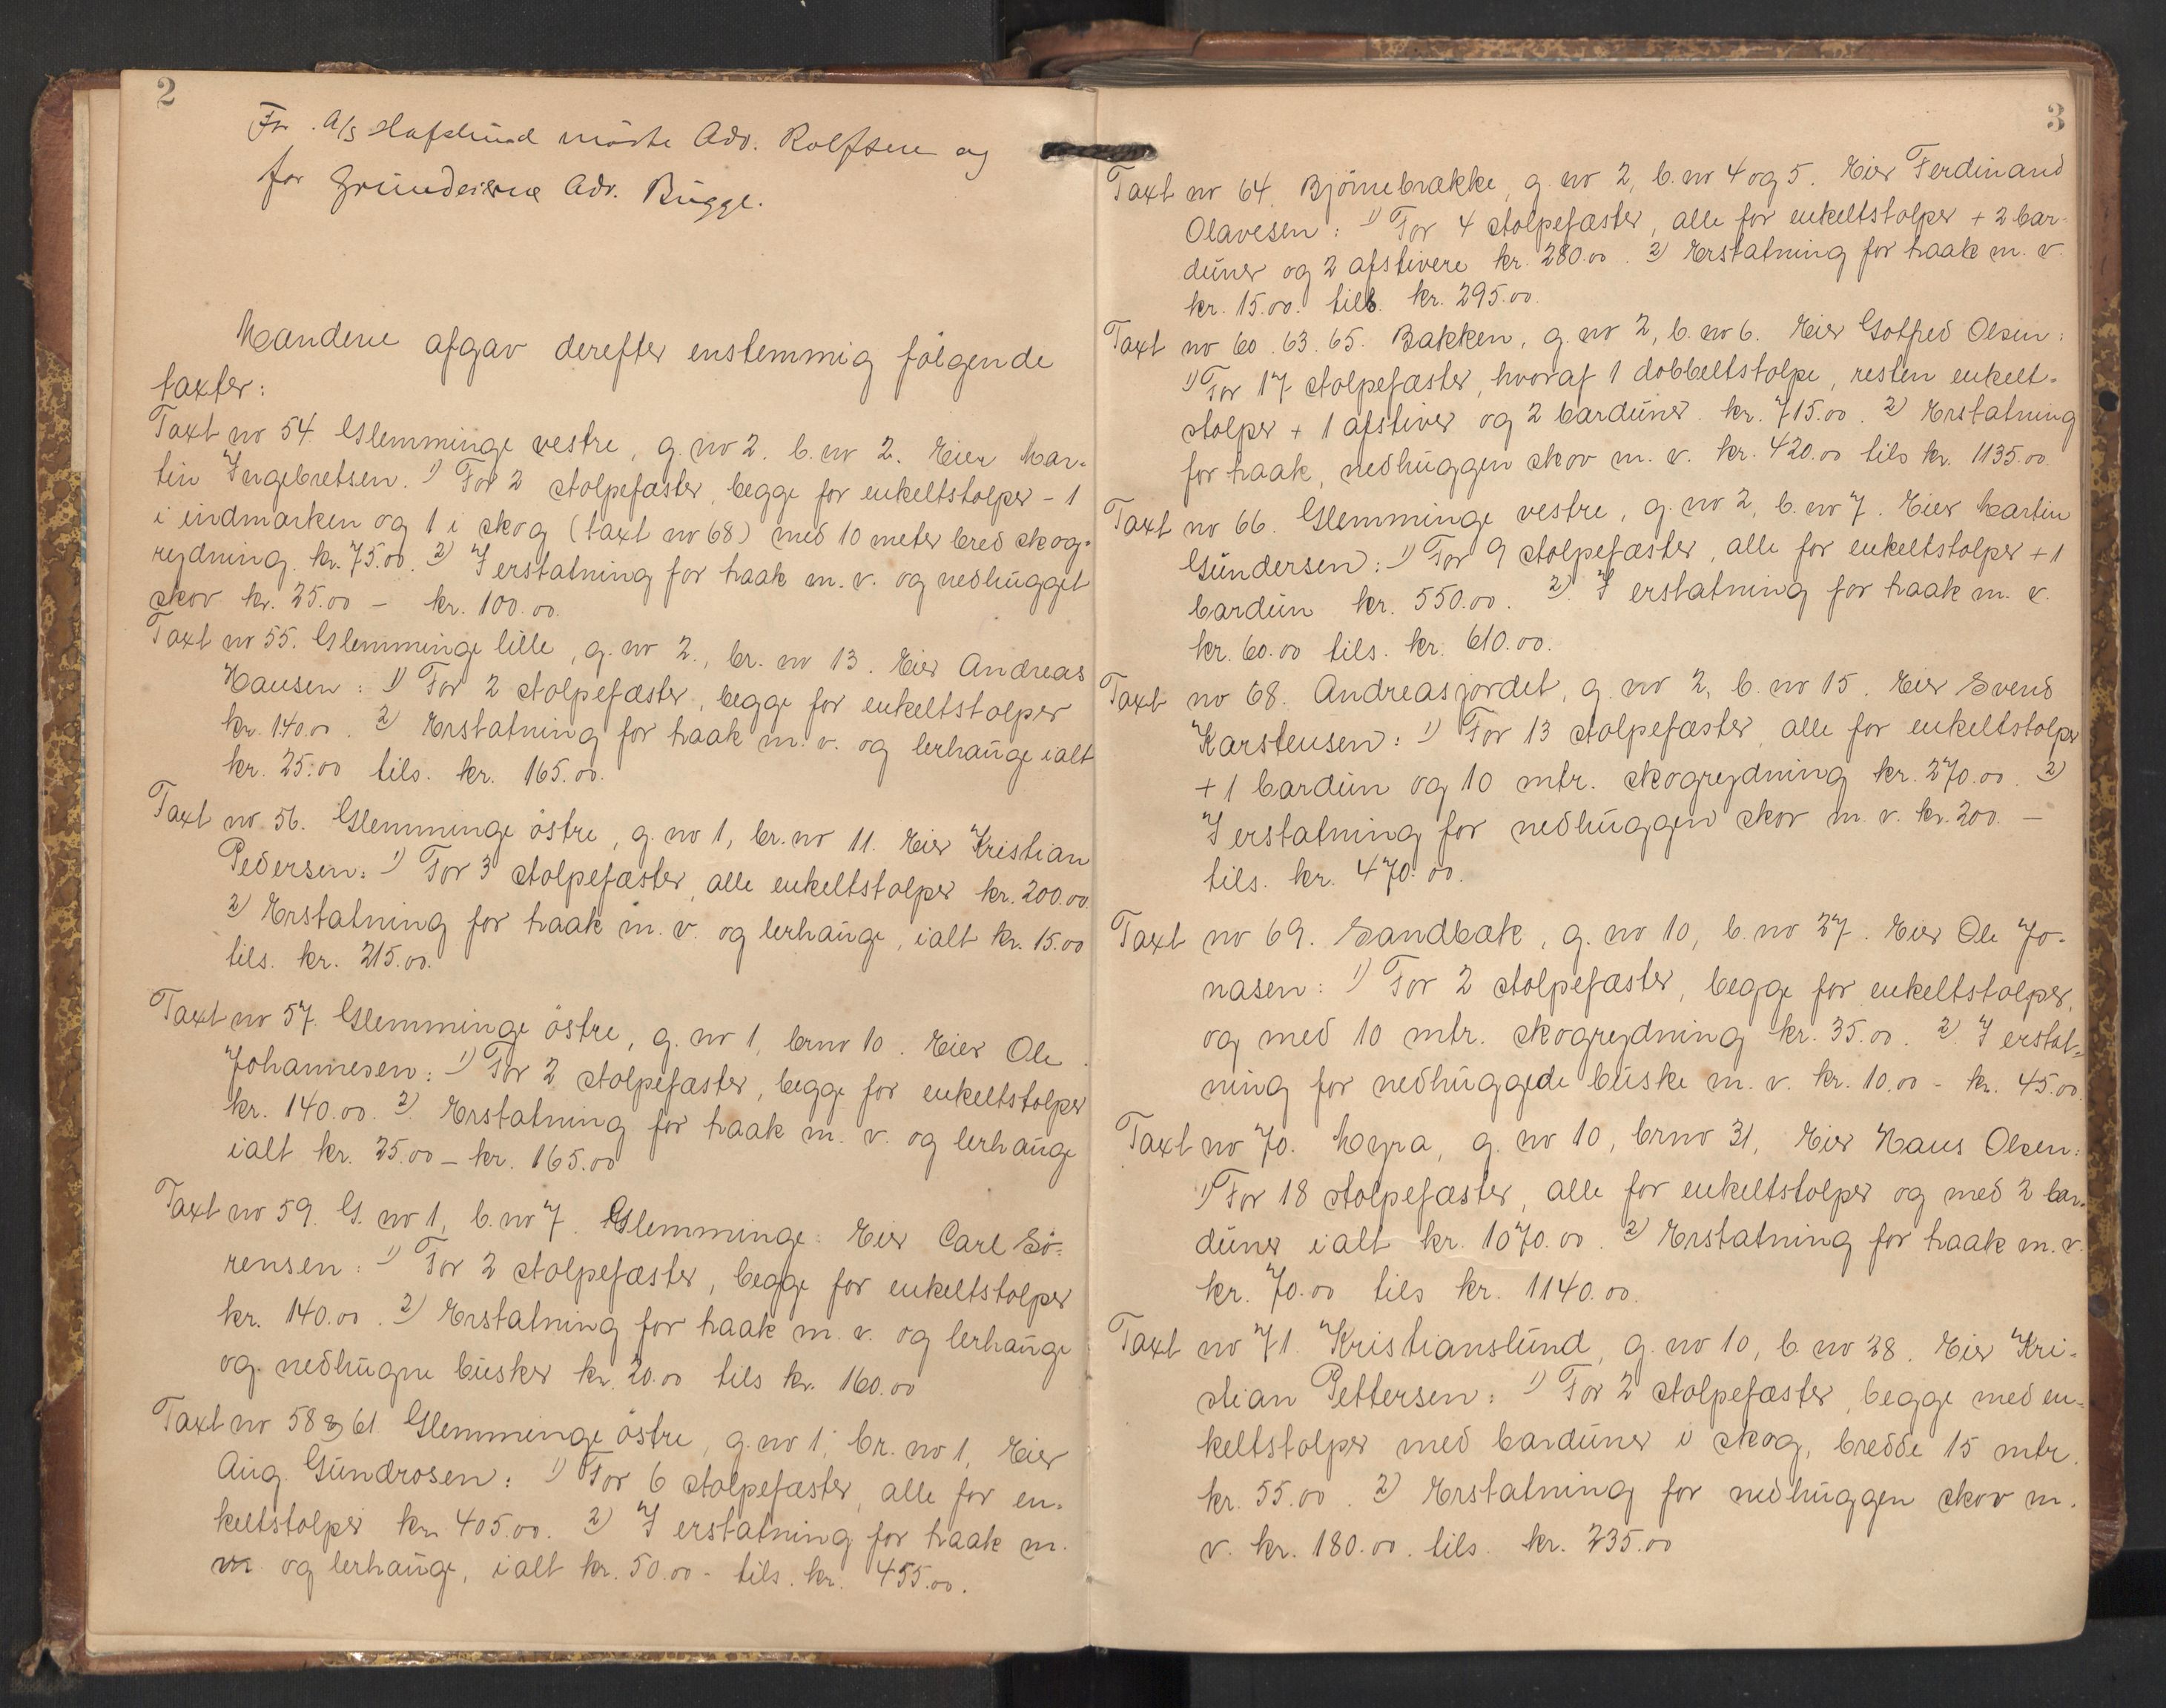 2
For A/S Hafslund mödte Adv. Rolfsen og
for Grundeierne Adv. Bugge.
Mændene afgav derefter enstemmig følgende
taxter:
Taxt no 54 Glemminge vestre, g. no 2. b. no 2. Eier Mar-
tin Ingebretsen. 1) For 2 stolpefæster, begge for enkeltstolper - 1
i indmarken og 1 i skog (taxt no 68) med 10 meter bred skog-
rydning. kr. 75.00. 2) I erstatning for haak m. v. og nedhugget
skov kr. 25.00 - kr. 100.00.
Taxt no 55. Glemminge lille, g. no 2., br. no 13. Eier Andreas
Hansen: 1) For 2 stolpefæster, begge for enkeltstolper
kr. 140.00. 2) Erstatning for haak m. v. og lerhauge ialt
kr. 25.00 tils. kr. 165.00.
Taxt no 56. Glemminge östre, g. no 1, br. no 11. Eier Kristian
Pedersen: 1) For 3 stolpefæster, alle enkeltstolper kr. 200.00
2) Erstatning for haak m. v. og lerhauge, ialt kr. 15.00
tils. kr. 215.00.
Taxt no 57. Glemminge östre, g. no 1, brno 10. Eier Ole
Johannesen: 1) For 2 stolpefæster, begge for enkeltstolper
kr. 140.00. 2) Erstatning for haak m. v. og lerhauge
ialt kr. 25.00 - kr. 165.00
Taxt no 59. G. no 1, b. no 7. Glemminge: Eier Carl Sö-
rensen: 1) For 2 stolpefæster, begge for enkeltstolper
kr. 140.00. 2) Erstatning for haak m. v. og lerhauge
og nedhugne busker kr. 20.00 tils kr. 160.00
Taxt no 58 & 61 Glemminge östre, g. no 1, br. no 1, Eier
Aug. Gundrosen: 1) For 6 stolpefæster, alle for en-
keltstolper kr. 405.00. 2) I erstatning for haak m.
v. og lerhauge, ialt kr. 50.00 - tils. kr. 455.00.
3
Taxt no 64. Björnebrække, g. no 2, b. no 4 og 5. Eier Ferdinand
Olavesen: 1) For 4 stolpefæster, alle for enkeltstolper + 2 bar-
duner og 2 afstivere kr. 280.00. 2) Erstatning for haak m. v.
kr. 15.00. tils. kr. 295.00.
Taxt no 60. 63. 65. Bakken, g. no 2, b. no 6. Eier Gotfred Olsen:
1) For 17 stolpefæster, hvoraf 1 dobbeltstolpe, resten enkelt-
stolper + 1 afstiver og 2 barduner. kr. 715.00. 2) Erstatning
for haak, nedhuggen skov m. v. kr. 420.00 tils kr. 1135.00
Taxt no 66. Glemminge vestre, g. no 2, b. no 7. Eier Martin
Gundersen: 1) For 9 stolpefæster, alle for enkeltstolper + 1
bardun kr. 550.00. 2) I erstatning for haak m. v.
kr. 60.00 tils. kr. 610.00.
Taxt no 68. Andreasjordet, g. no 2, b. no 15. Eier Svend
Karstensen: 1) For 13 stolpefæster, alle for enkeltstolper
+ 1 bardun og 10 mtr. skogrydning kr. 270.00. 2)
I erstatning for nedhuggen skov m. v. kr. 200. -
tils. kr. 470.00.
Taxt no 69. Sandbak, g. no 10, b. no 27. Eier Ole Jo-
nasen: 1) For 2 stolpefæster, begge for enkeltstolper,
og med 10 mtr. skogrydning kr. 35.00. 2) I erstat-
ning for nedhuggede buske m. v. kr. 10.00 - kr. 45.00.
Taxt no 70. Myra, g. no 10, brno 31, Eier Hans Olsen:
1) For 18 stolpefæster, alle for enkeltstolper og med 2 bar-
duner ialt kr. 1070.00. 2) Erstatning for haak m. v.
kr. 70.00 tils kr. 1140.00.
Taxt no 71. Kristianslund, g. no 10, b. no 28. Eier Kri-
stian Pettersen: 1) For 2 stolpefæster, begge med en-
keltstolper med barduner i skog, bredde 15 mtr.
kr. 55.00. 2) Erstatning for nedhuggen skov m.
v. kr. 180.00. tils. kr. 235.00